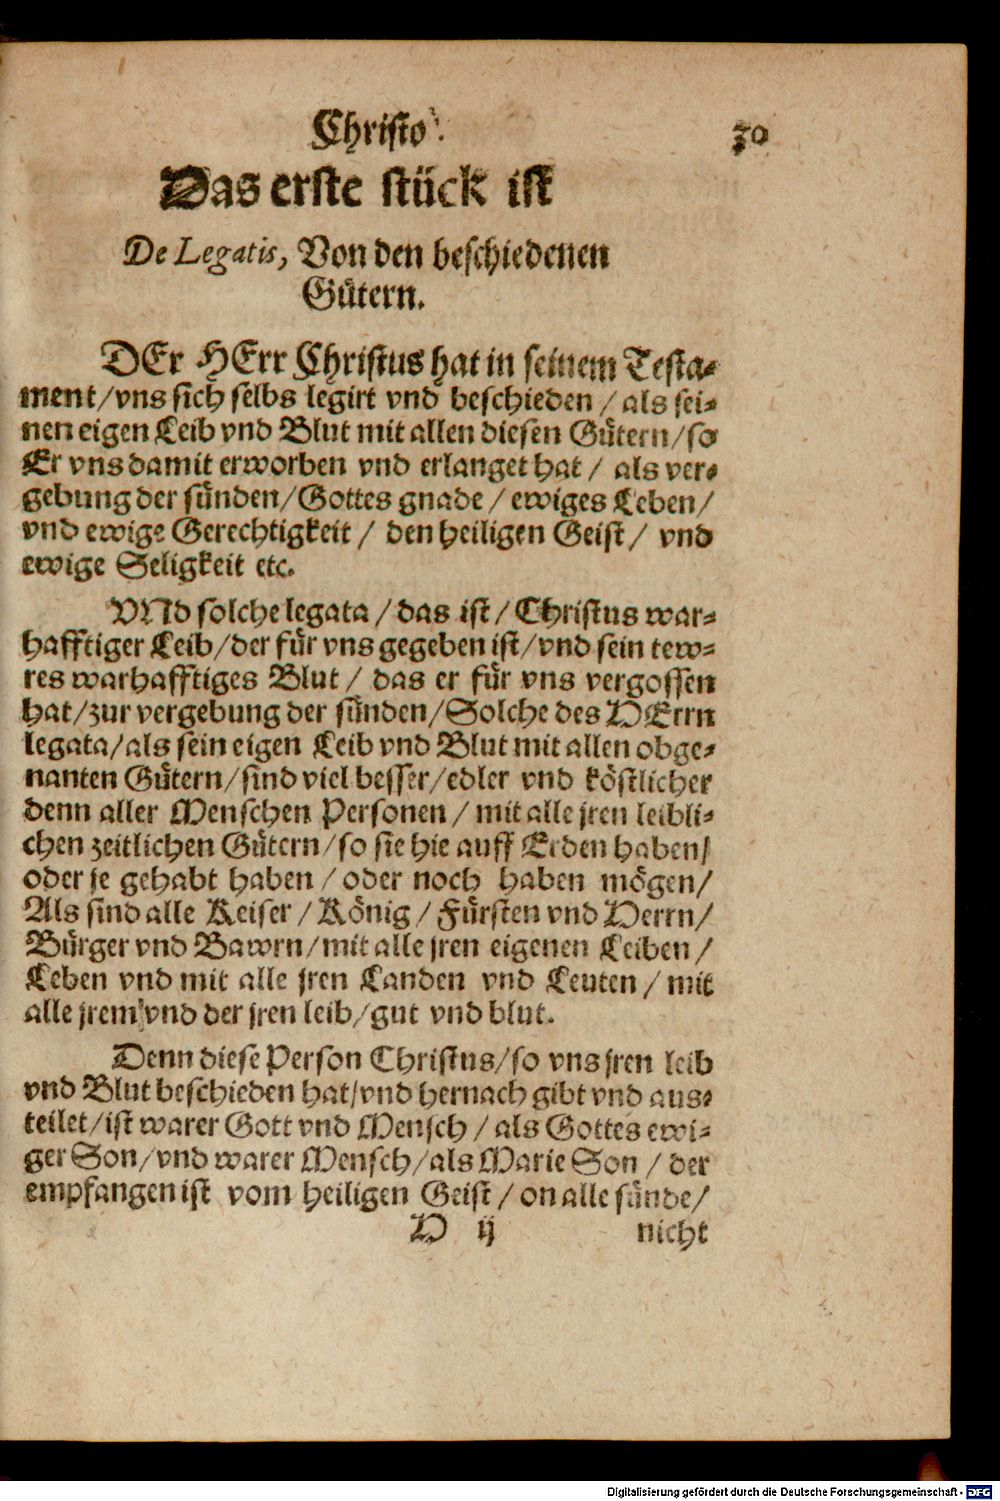 Christo.
30
Das erste stück ist
De Legatis, Von den beschiedenen
Gütern.
DEr HErr Christus hat in seinem Testa-
ment/vns sich selbs legirt vnd beschieden / als sei-
nen eigen Leib vnd Blut mit allen diesen Gütern/so
Er vns damit erworben vnd erlanget hat / als ver-
gebung der sünden/Gottes gnade / ewiges Leben/
vnd ewige Gerechtigkeit / den heiligen Geist / vnd
ewige Seligkeit etc.
VNd solche legata / das ist / Christus war-
hafftiger Leib/der für vns gegeben ist/vnd sein tew-
res warhafftiges Blut / das er für vns vergossen
hat/zur vergebung der sünden/Solche des HErrn
legata/als sein eigen Leib vnd Blut mit allen obge-
nanten Gütern/sind viel besser/edler vnd köstlicher
denn aller Menschen Personen / mit alle jren leibli-
chen zeitlichen Gütern/so sie hie auff Erden haben/
oder je gehabt haben / oder noch haben mögen/
Als sind alle Keiser / König / Fürsten vnd Herrn/
Bürger vnd Bawrn/mit alle jren eigenen Leiben /
Leben vnd mit alle jren Landen vnd Leuten / mit
alle jrem vnd der jren leib/gut vnd blut.
Denn diese Person Christus/so vns jren leib
vnd Blut beschieden hat/vnd hernach gibt vnd aus-
teilet/ist warer Gott vnd Mensch / als Gottes ewi-
ger Son/vnd warer Mensch/als Marie Son / der
empfangen ist vom heiligen Geist / on alle sünde/
H ij
nicht
Digitalisierung gefördert durch die Deutsche Forschungsgemeinschaft - DFG